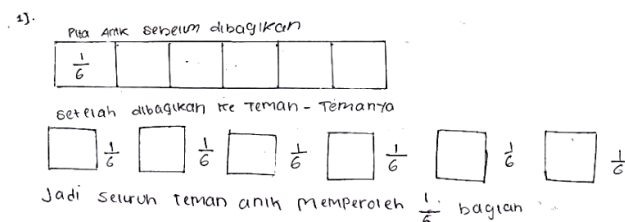 1].
Pita Anik sebelum dibagikan
1/6
setelah dibagikan ke Teman - Temanya
1/6 1/6 1/6 1/6 1/6 1/6
Jadi seluruh teman anik memperoleh 1/6 bagian